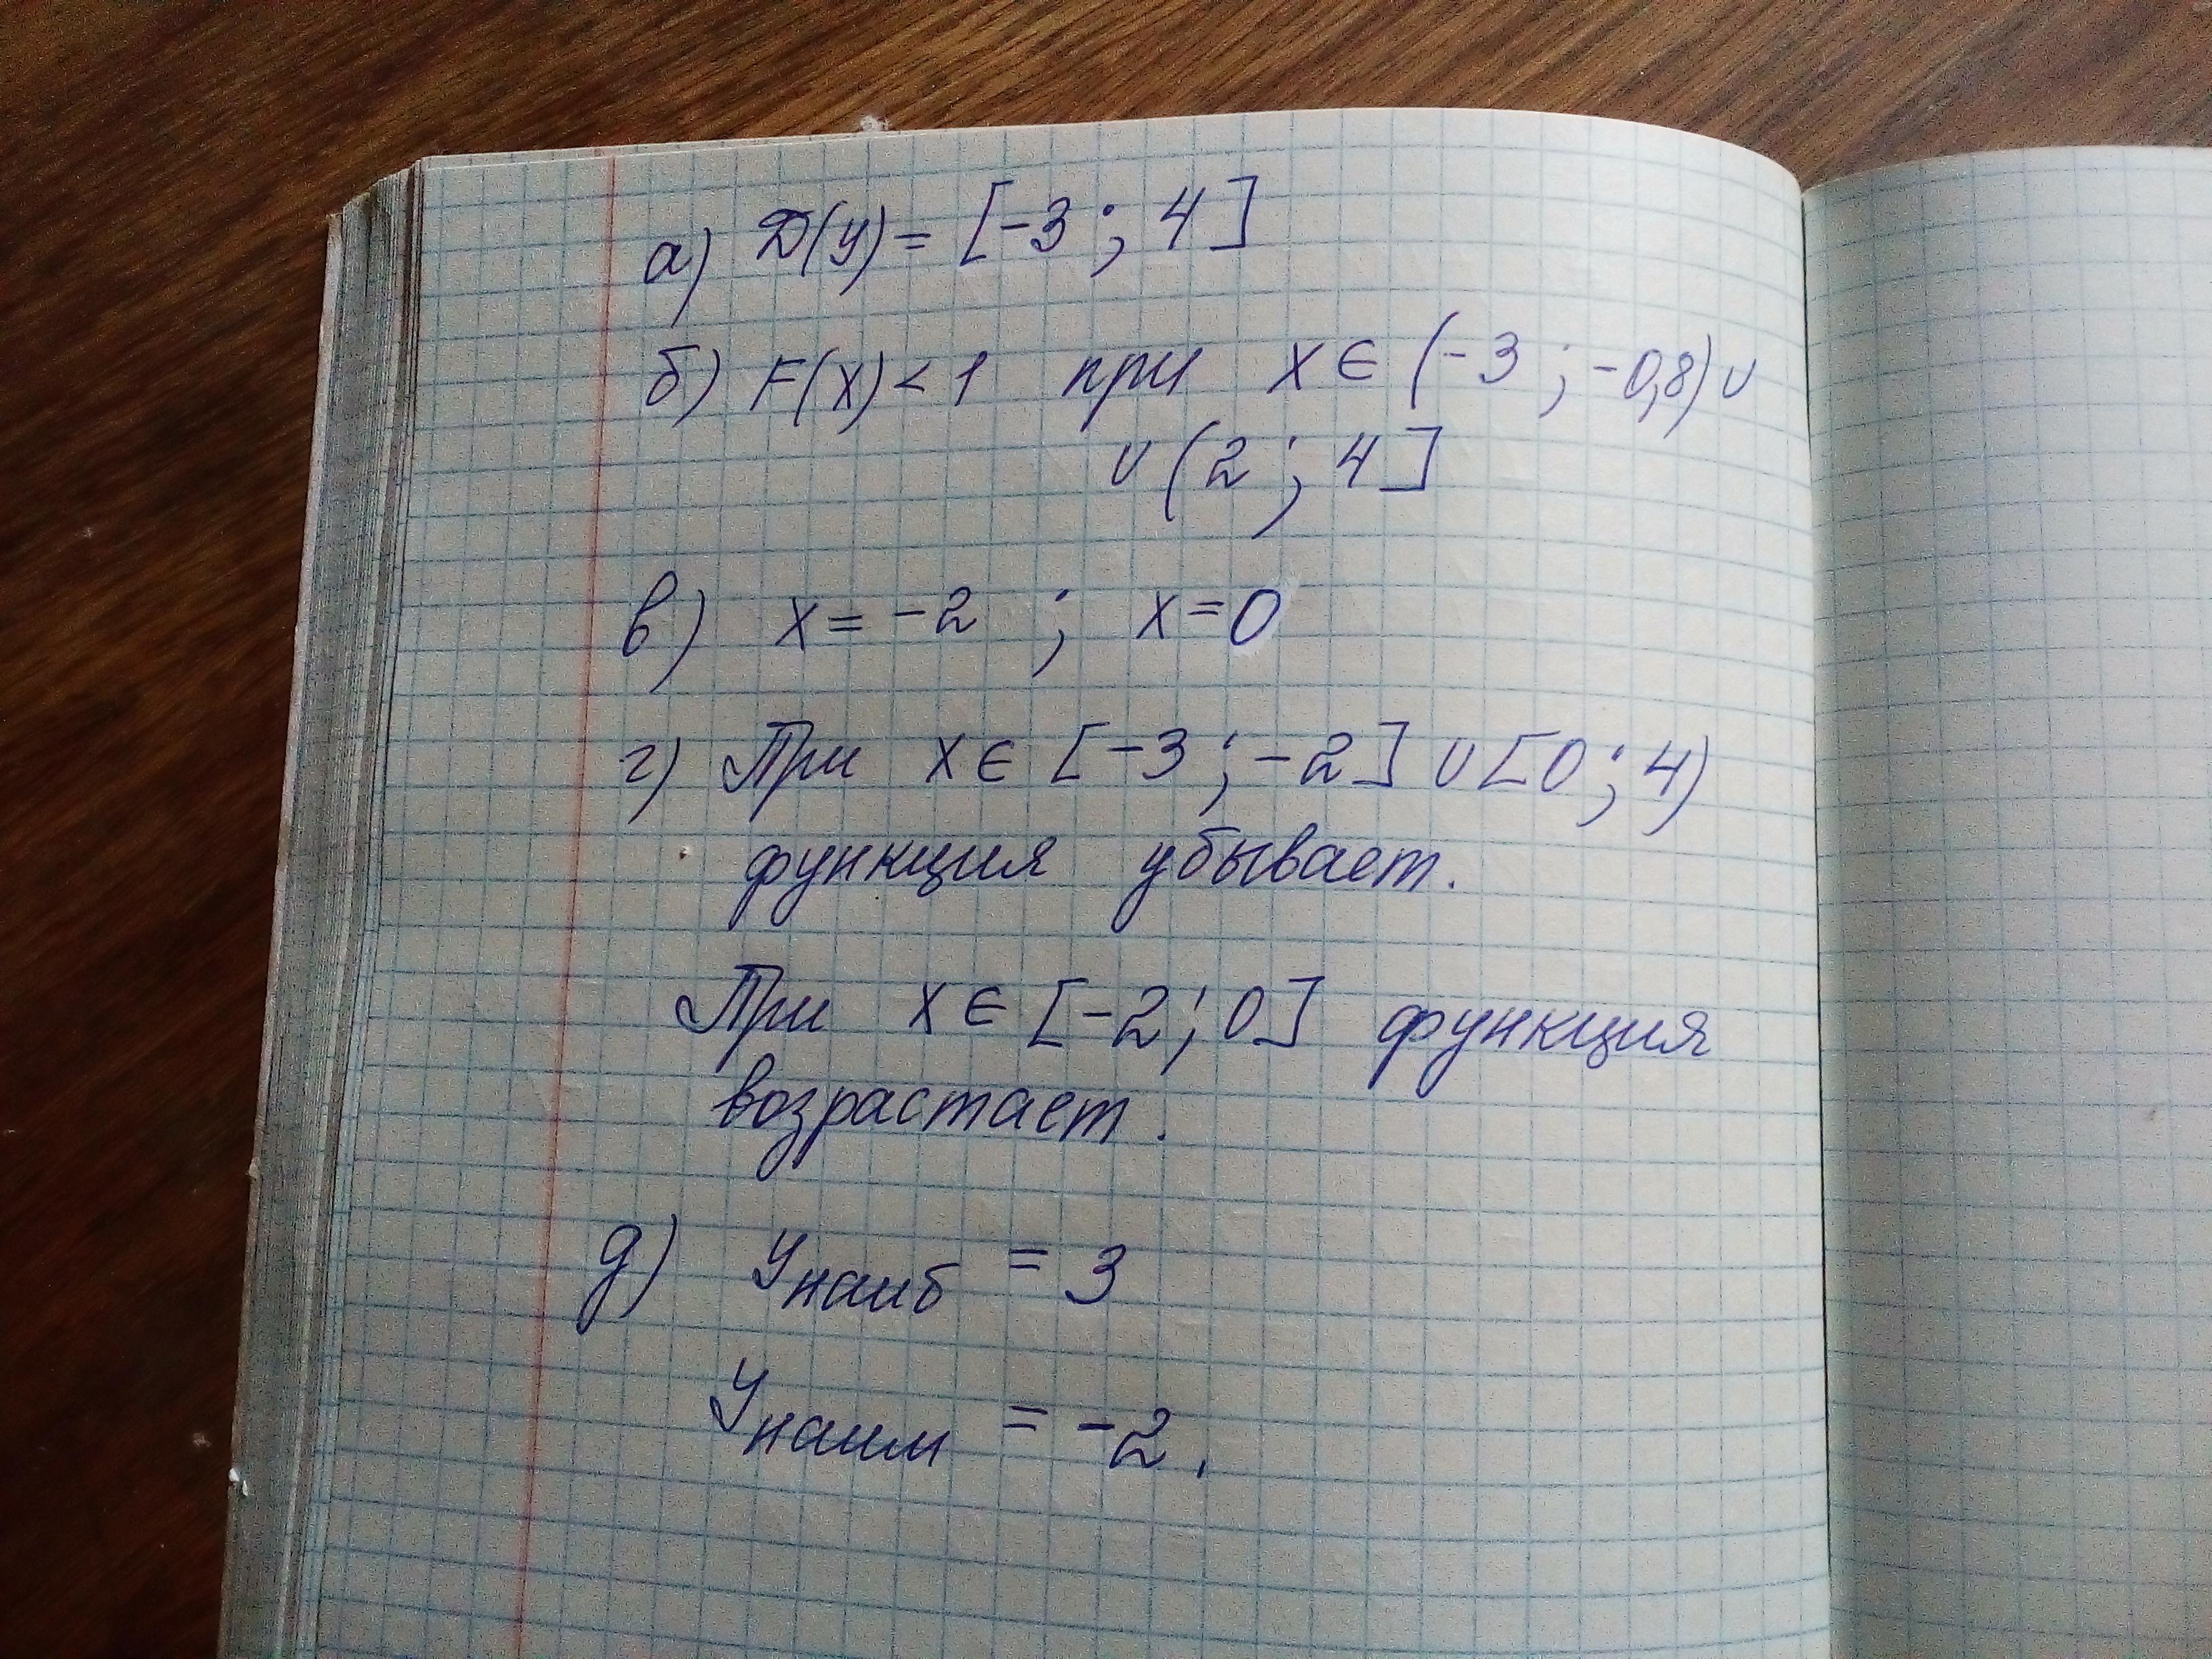 а) D(y) = [-3 ; 4]
б) F(x) < 1 при x ∈ (-3 ; -0,8) ∪
∪ (2 ; 4]
в) x = -2 ; x = 0
г) При x ∈ [-3 ; -2] ∪ [0 ; 4)
функция убывает.
При x ∈ [-2 ; 0] функция
возрастает.
д) Yнаиб = 3
Yнаим = -2.